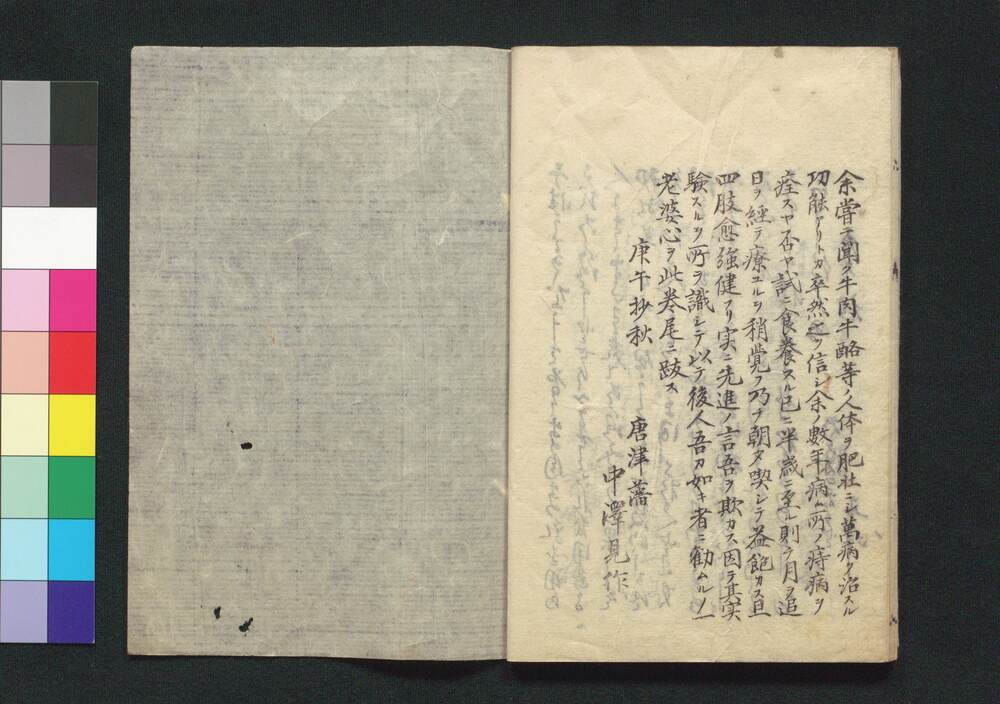 余嘗テ聞ク牛肉牛酪等ノ人体ヲ肥壮ニシ萬病ヲ治スル
功能アリトカ卒然之ヲ信シ余ノ数年病ム所ノ痔病ヲ
痊スヤ否ヤ試ニ食養スル已ニ半歳ニ至ル則チ月ヲ追
日ヲ経テ療ユルヲ稍覚フ乃チ朝夕喫シテ益飽カス且
四肢愈強健ナリ実ニ先進ノ言吾ヲ欺カス因テ其実
験スルノ所ヲ識シテ以テ後人吾カ如キ者ニ勧ムルノ一
老婆心ヲ此巻尾ニ跋ス
庚午抄秋
唐津藩
中澤見作